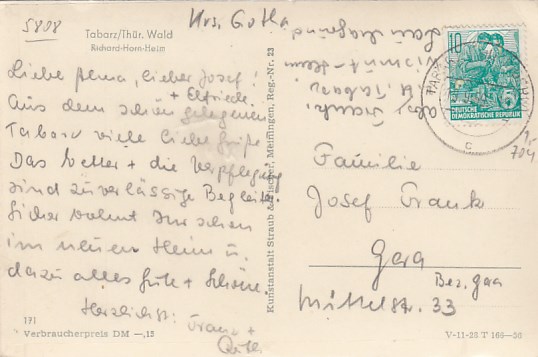 5808
Krs. Gotha
Tabarz/Thür. Wald
Richard-Horn-Heim
Liebe Anna, lieber Josef!
+ Elfriede
Aus dem schön gelegenen
Tabarz viele liebe Grüße
Das Wetter + die Verpflegung
sind zuverlässige Begleiter.
Sicher wohnt Ihr schon
im neuen Heim u.
dazu alles Gute + Schöne.
Herzlichst:
Franz +
171
Verbraucherpreis DM –,15
Kunstanstalt Straub & Fischer, Meiningen, Reg.-Nr. 23
10
5
DEUTSCHE
DEMOKRATISCHE REPUBLIK
c
704
Familie
Josef Frank
Gera
Bez. Gera
Mittelstr. 33
V-11-28 T 166—56